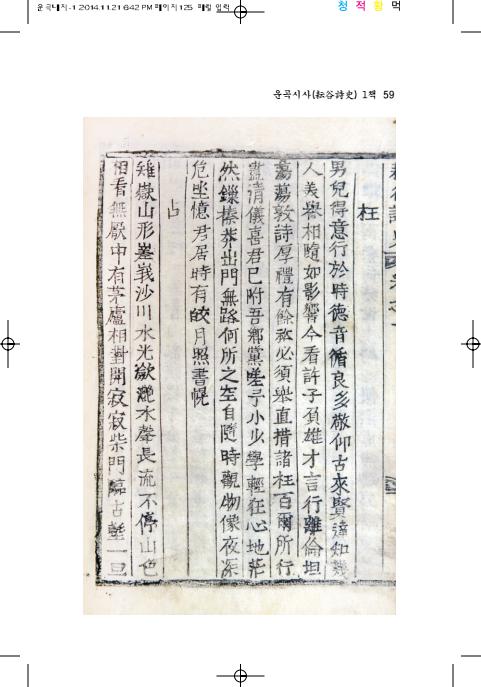 운곡대지-1 2014.11.21 6:42 PM 페이지 125
청 적 황 먹
운곡시사(耘谷詩史) 1책 59
枉
男兒得意行於時德音循良多敬仰古來賢達知幾
人美譽相隨如影響今看許子負雄才言行離倫坦
蕩蕩敦詩厚禮有餘必須舉直措諸枉百爾所行
清儀喜君已附吾鄕黨嗟予小少學輕狂心地茫
然鑠榛莽出門無路何所之空自隨時觀物像夜深
危坐憶君居時有皎月照書幌
占
雉嶽山形峩沙川水光瀲灔水聲長流不停山色
相看無厭中有茅廬相對開寂寂柴門臨古壍一旦